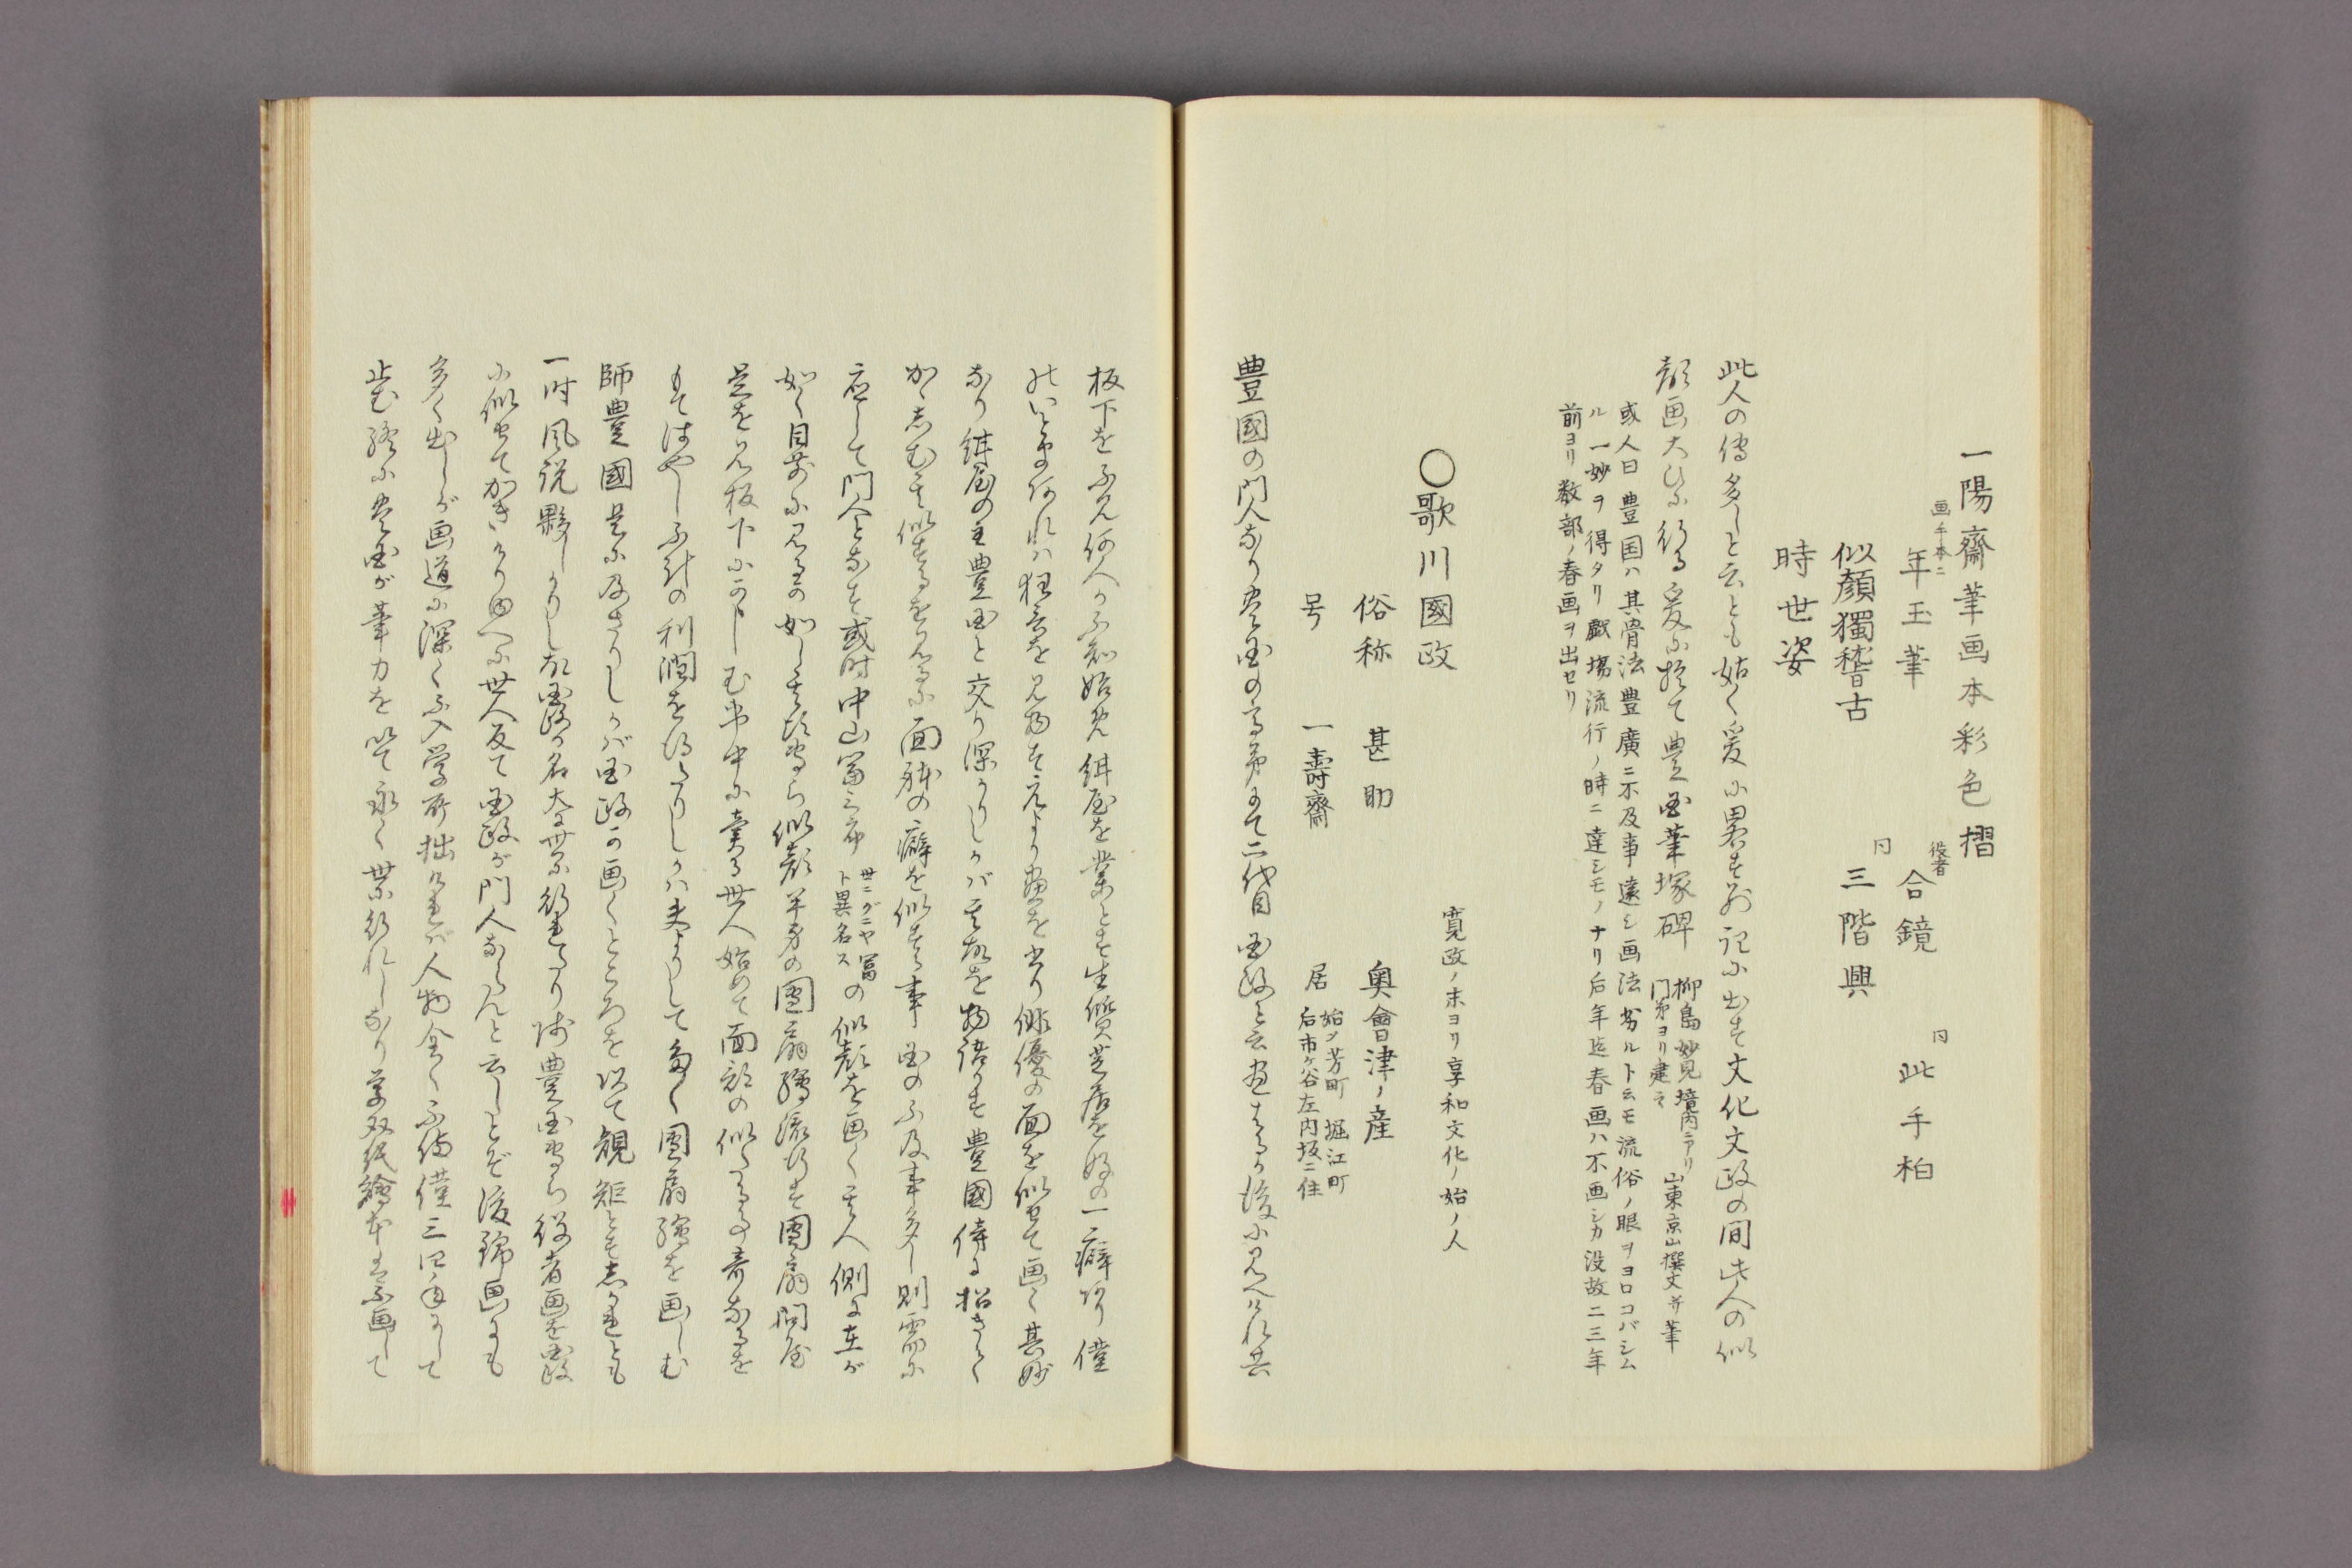 一陽齋筆画本彩色摺
画手本ニ
年玉筆 役者合鏡 同此手柏
似顔獨稽古 同三階興
時世姿
此人の傳多しと云とも姑く爰に畧す別記に出す文化文政の間此人の似
顔画大ひに行る爰に於て豊国筆塚碑 柳島妙見境内ニアリ 門弟ヨリ建之 山東京山撰文并筆
或人曰豊国ハ其骨法豊廣ニ不及事遠シ画法劣ルト云モ流俗ノ眼ヲヨロコバシム
ル一妙ヲ得タリ戯場流行ノ時ニ達シモノナリ后年迄春画ハ不画シカ没故二三年
前ヨリ数部ノ春画ヲ出セリ
寛政ノ末ヨリ享和文化ノ始ノ人
〇歌川國政
俗称 甚助 奥會津ノ産
号 一壽齋 居 始メ芳町 堀江町 后市ケ谷左内坂ニ住
豊國の門人なり豊国の高弟にて二代目国政と云画する後に見へけれ共
板下を不見何人か不知始め紺屋を業とす生質芝居を好の一癖あり僅
のいとまあれは狂言を見物す元より画を書り俳優の面を似せて画く其妙
あり紺屋の主豊国と交り深かりしかバ其故を物語す豊國侍を招きて
かゝしむ其似するを見るに面躰の癖を似する事国の不及事多し則需に
應して門人となす或時中山富三郎 世ニグニヤ冨ト異名ス の似顔を画く其人側に在が
如く目前に見るの如し其頃専ら似顔半身の團扇繪流行す團扇問屋
是を見板下に下しむ市中に賣る世人始めて面部の似たる事奇なるを
もてはやし不計の利潤を得たりしかは夫よりして多く團扇繪を画しむ
師豊國是に及さりしかバ国政の画くところを以て規矩とす志かれとも
一時風説夥しかりし故国政の名大に世に行れたり師豊国専ら役者画を国政
に似せてかきける由へに世人反て国政が門人ならんと云しとぞ後錦画にも
多く出しが画道に深く不入学所拙けれバ人物全く不備僅三四年にして
止む終に豊国が筆力を以て永く世に行れしなり草双紙繪本は不画して